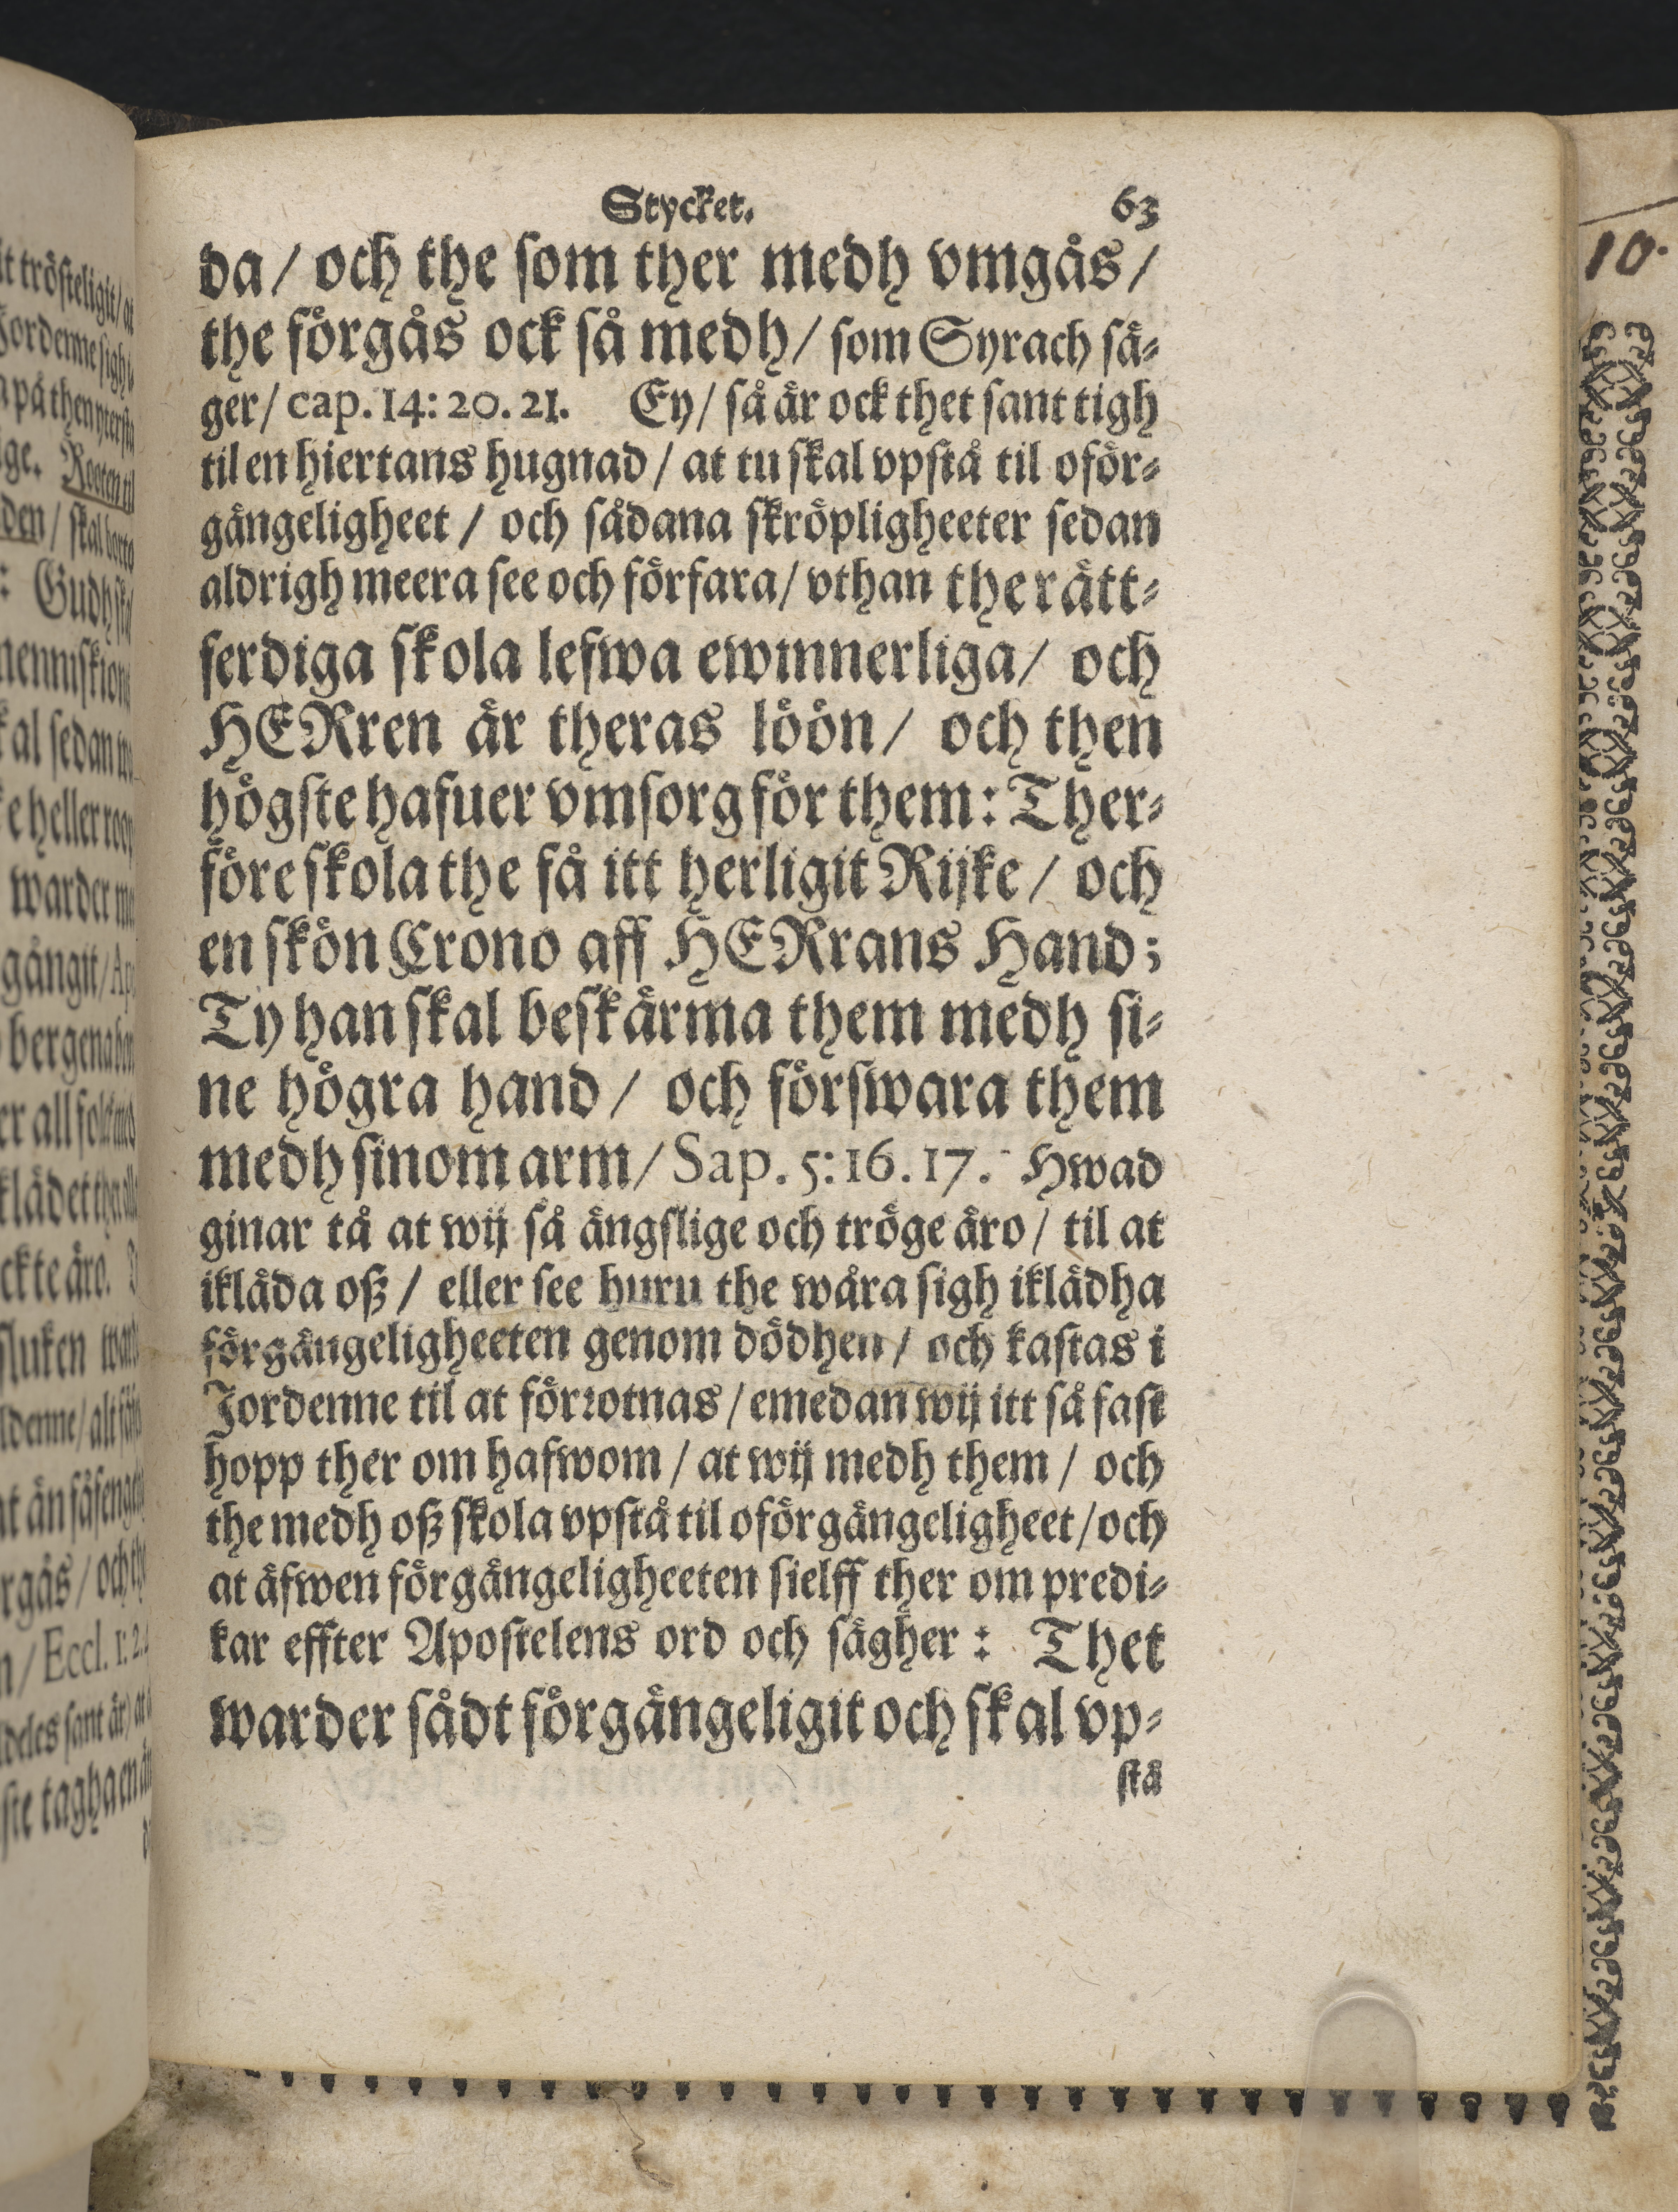 Stycket. 63
da / och the som ther medh vmgås /
the förgås ock så medh / som Syrach sä-
ger / cap. 14: 20. 21. Ey / så är ock thet sant tigh
til en hiertans hugnad / at tu skal vpstå til oför-
gängeligheet / och sådana skröpligheeter sedan
aldrigh meera see och förfara / vthan the rätt-
ferdiga skola lefwa ewinnerliga / och
HERren är theras löön / och then
högste hafuer vmsorg för them: Ther-
före skola the få itt herligit Rijke / och
en skön Crono aff HERrans Hand;
Ty han skal beskärma them medh si-
ne högra hand / och förswara them
medh sinom arm / Sap. 5: 16. 17. Hwad
ginar tå at wij så ängslige och tröge äro / til at
ikläda oß / eller see huru the wåra sigh iklädha
förgängeligheeten genom dödhen / och kastas i
Jordenne til at förrotnas / emedan wij itt så fast
hopp ther om hafwom / at wij medh them / och
the medh oß skola vpstå til oförgängeligheet / och
at äfwen förgängeligheeten sielff ther om predi-
kar effter Apostelens ord och sägher: Thet
warder sådt förgängeligit och skal vp-
stå
10.